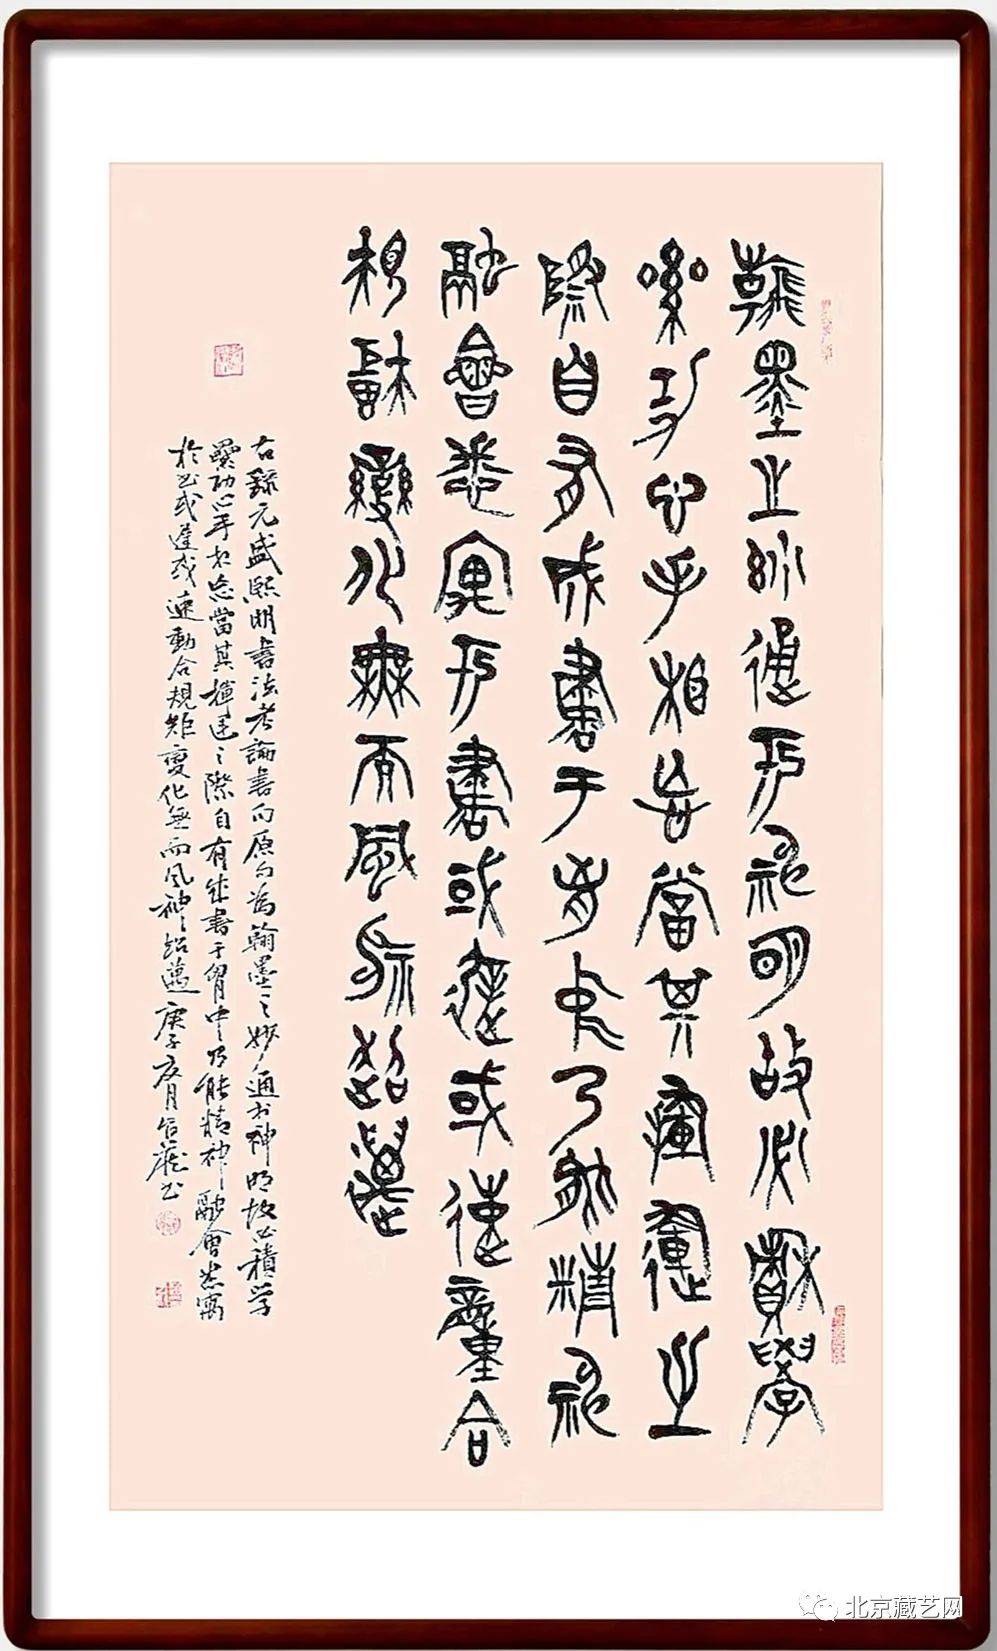 翰墨之妙通於神明故必積學
纍功心手相忘當其揮運之
際自有成書于胷中乃能精神
融會悉寓於書或遲或速動合
規矩變化無而風神超邁
右錄元盛熙明書法考論書句原句為翰墨之妙通於神明故必積學
纍功心手相忘當其揮運之際自有成書于胷中乃能精神融會悉寓
於書或遲或速動合規矩變化無而風神超邁庚子夏月書
北京藏艺网